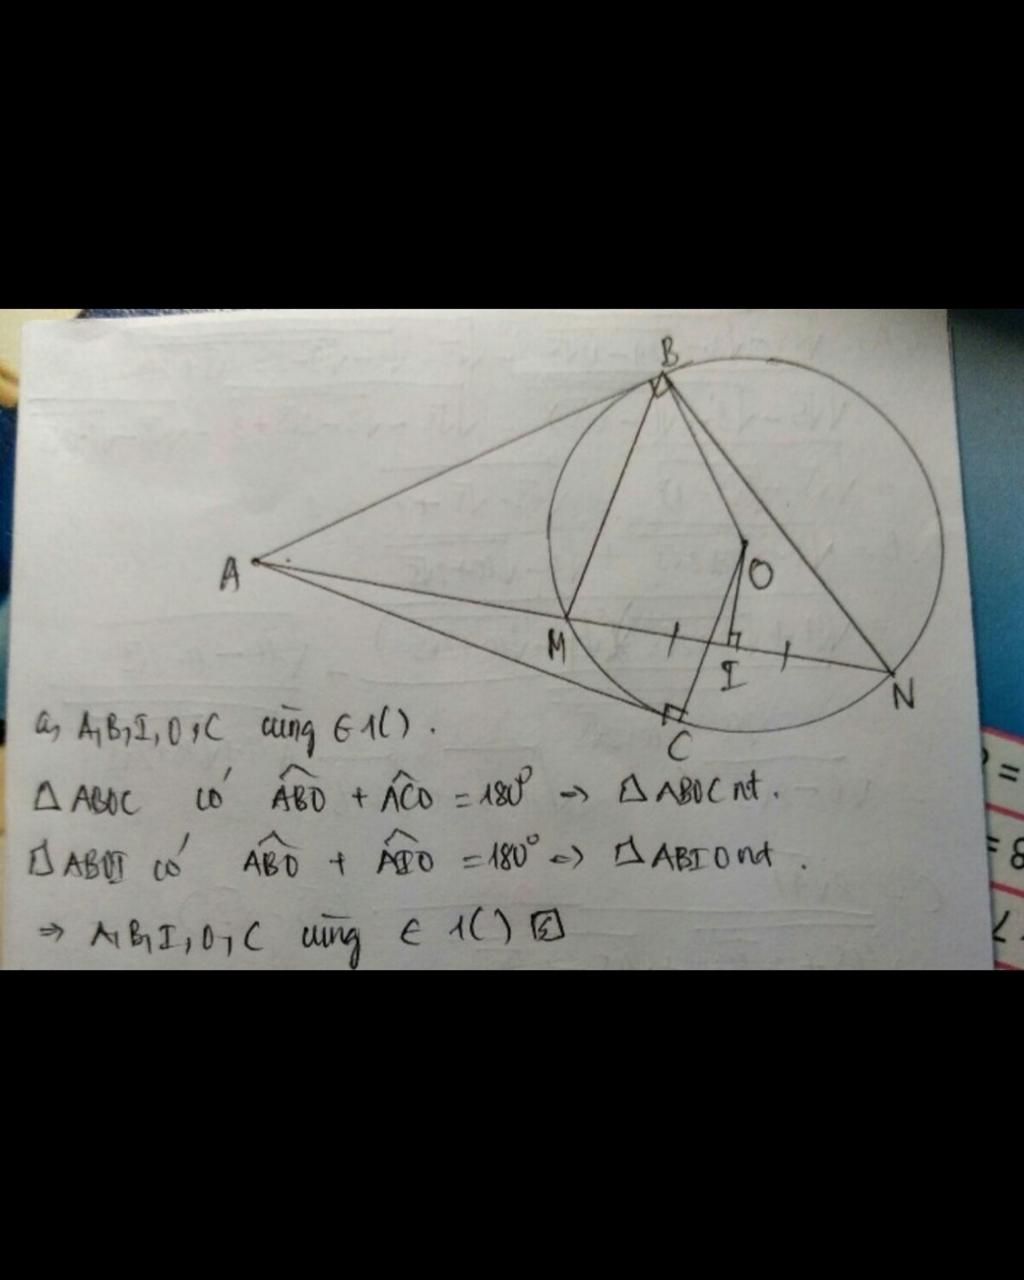 B
A
O
M
I
N
C
a, A,B,I,O,C cùng ∈ 1().
△ ABOC có ABO + ACO = 180° => △ ABOC nt.
△ ABOI có ABO + AIO = 180° => △ ABIO nt.
=> A,B,I,O,C cùng ∈ 1()
=
= 8